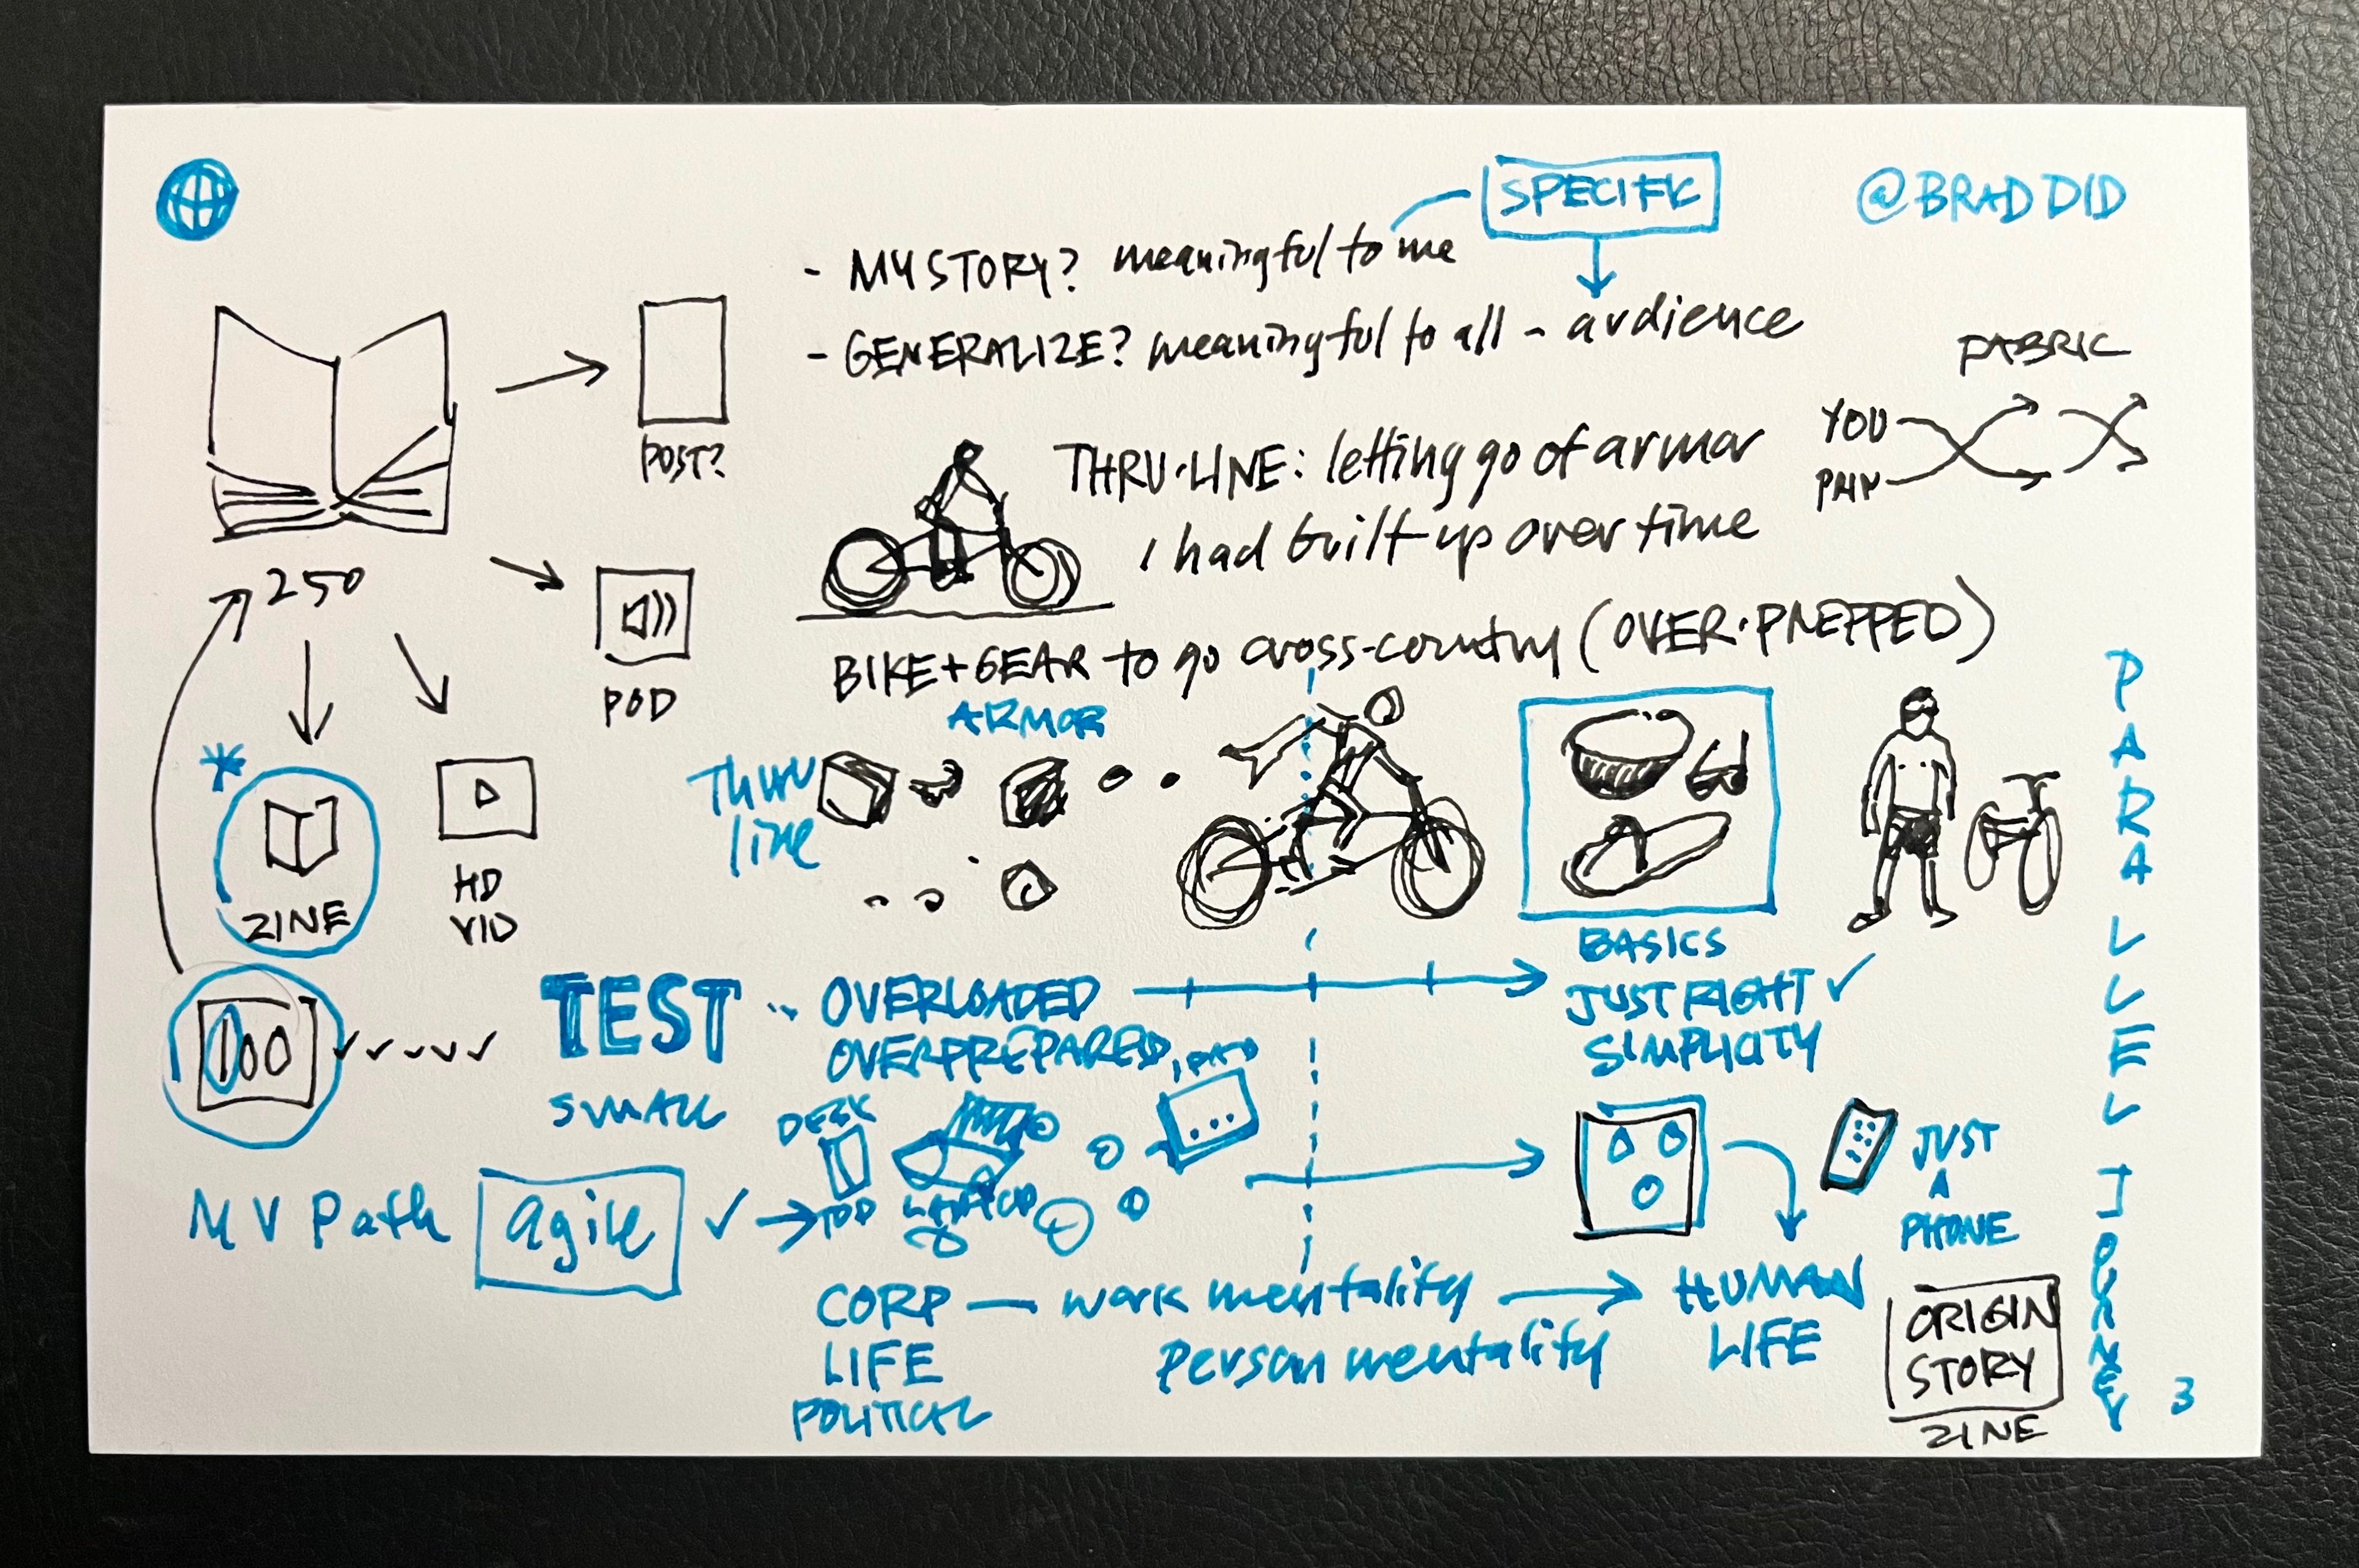 SPECIFIC
@BRADDID
- MY STORY? meaningful to me
- GENERALIZE? meaningful to all - audience
FABRIC
YOU
POST?
THRU-LINE: letting go of armor
I had built-up over time
250
POD
BIKE + GEAR to go cross-country (OVER-PREPPED)
ARMOR
THRU
line
ZINE
HD
VID
BASICS
100
TEST
OVERLOADED
JUST RIGHT
OVERPREPARED
SIMPLICITY
SMALL
DESK
TOP
LAPTOP
IPAD
JUST
A
PHONE
MV Path
agile
CORP — work mentality
HUMAN
LIFE
LIFE
Person mentality
POLITICAL
ORIGIN
STORY
ZINE
PARALLEL JOURNEY
3